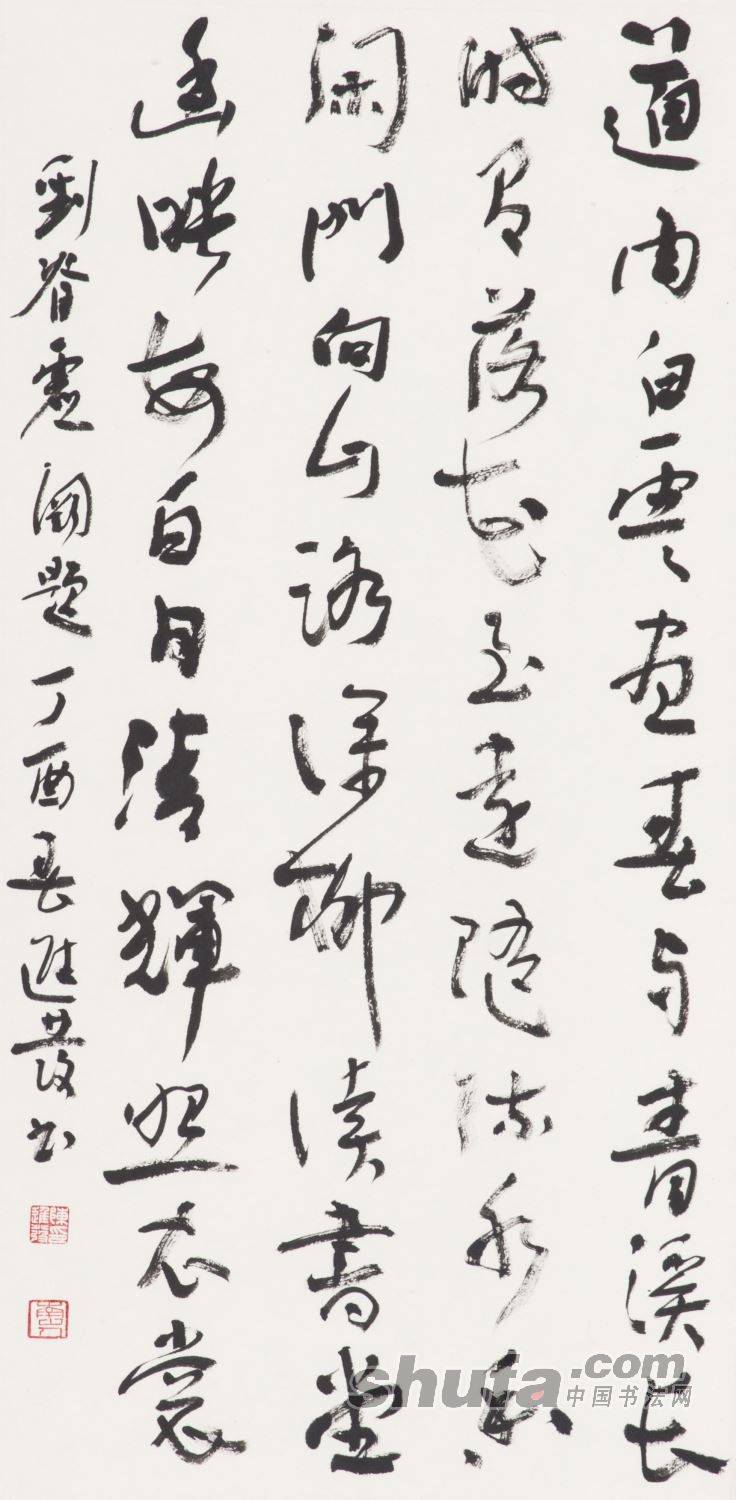 道由白雲盡春与青溪長
時有落花至遠隨流水香
閑門向山路深柳讀書堂
幽映每白日清輝照衣裳
劉眘虛闕題丁酉春進發书
shufa.com
中国书法网